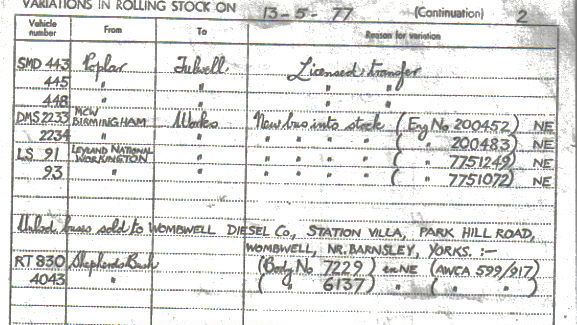 VARIATIONS IN ROLLING STOCK ON 13-5-77 (Continuation) 2
Vehicle number From To Reason for variation
SMD 443 Poplar Fulwell Licensed transfer
445 " " " "
448 " " " "
DMS 2233 MCW BIRMINGHAM Works New bus into stock (Eng No 200452) NE
2234 " " " " " " ( " 200483) NE
LS 91 LEYLAND NATIONAL WORKINGTON " " " " " ( " 7751249) NE
93 " " " " " " ( " 7751072) NE
Unlicd buses sold to WOMBWELL DIESEL Co., STATION VILLA, PARK HILL ROAD,
WOMBWELL, NR. BARNSLEY, YORKS. :-
RT 830 Shepherds Bush (Body No 7229) ex NE (AWCA 599/917)
4043 " ( " 6137) " ( " " )